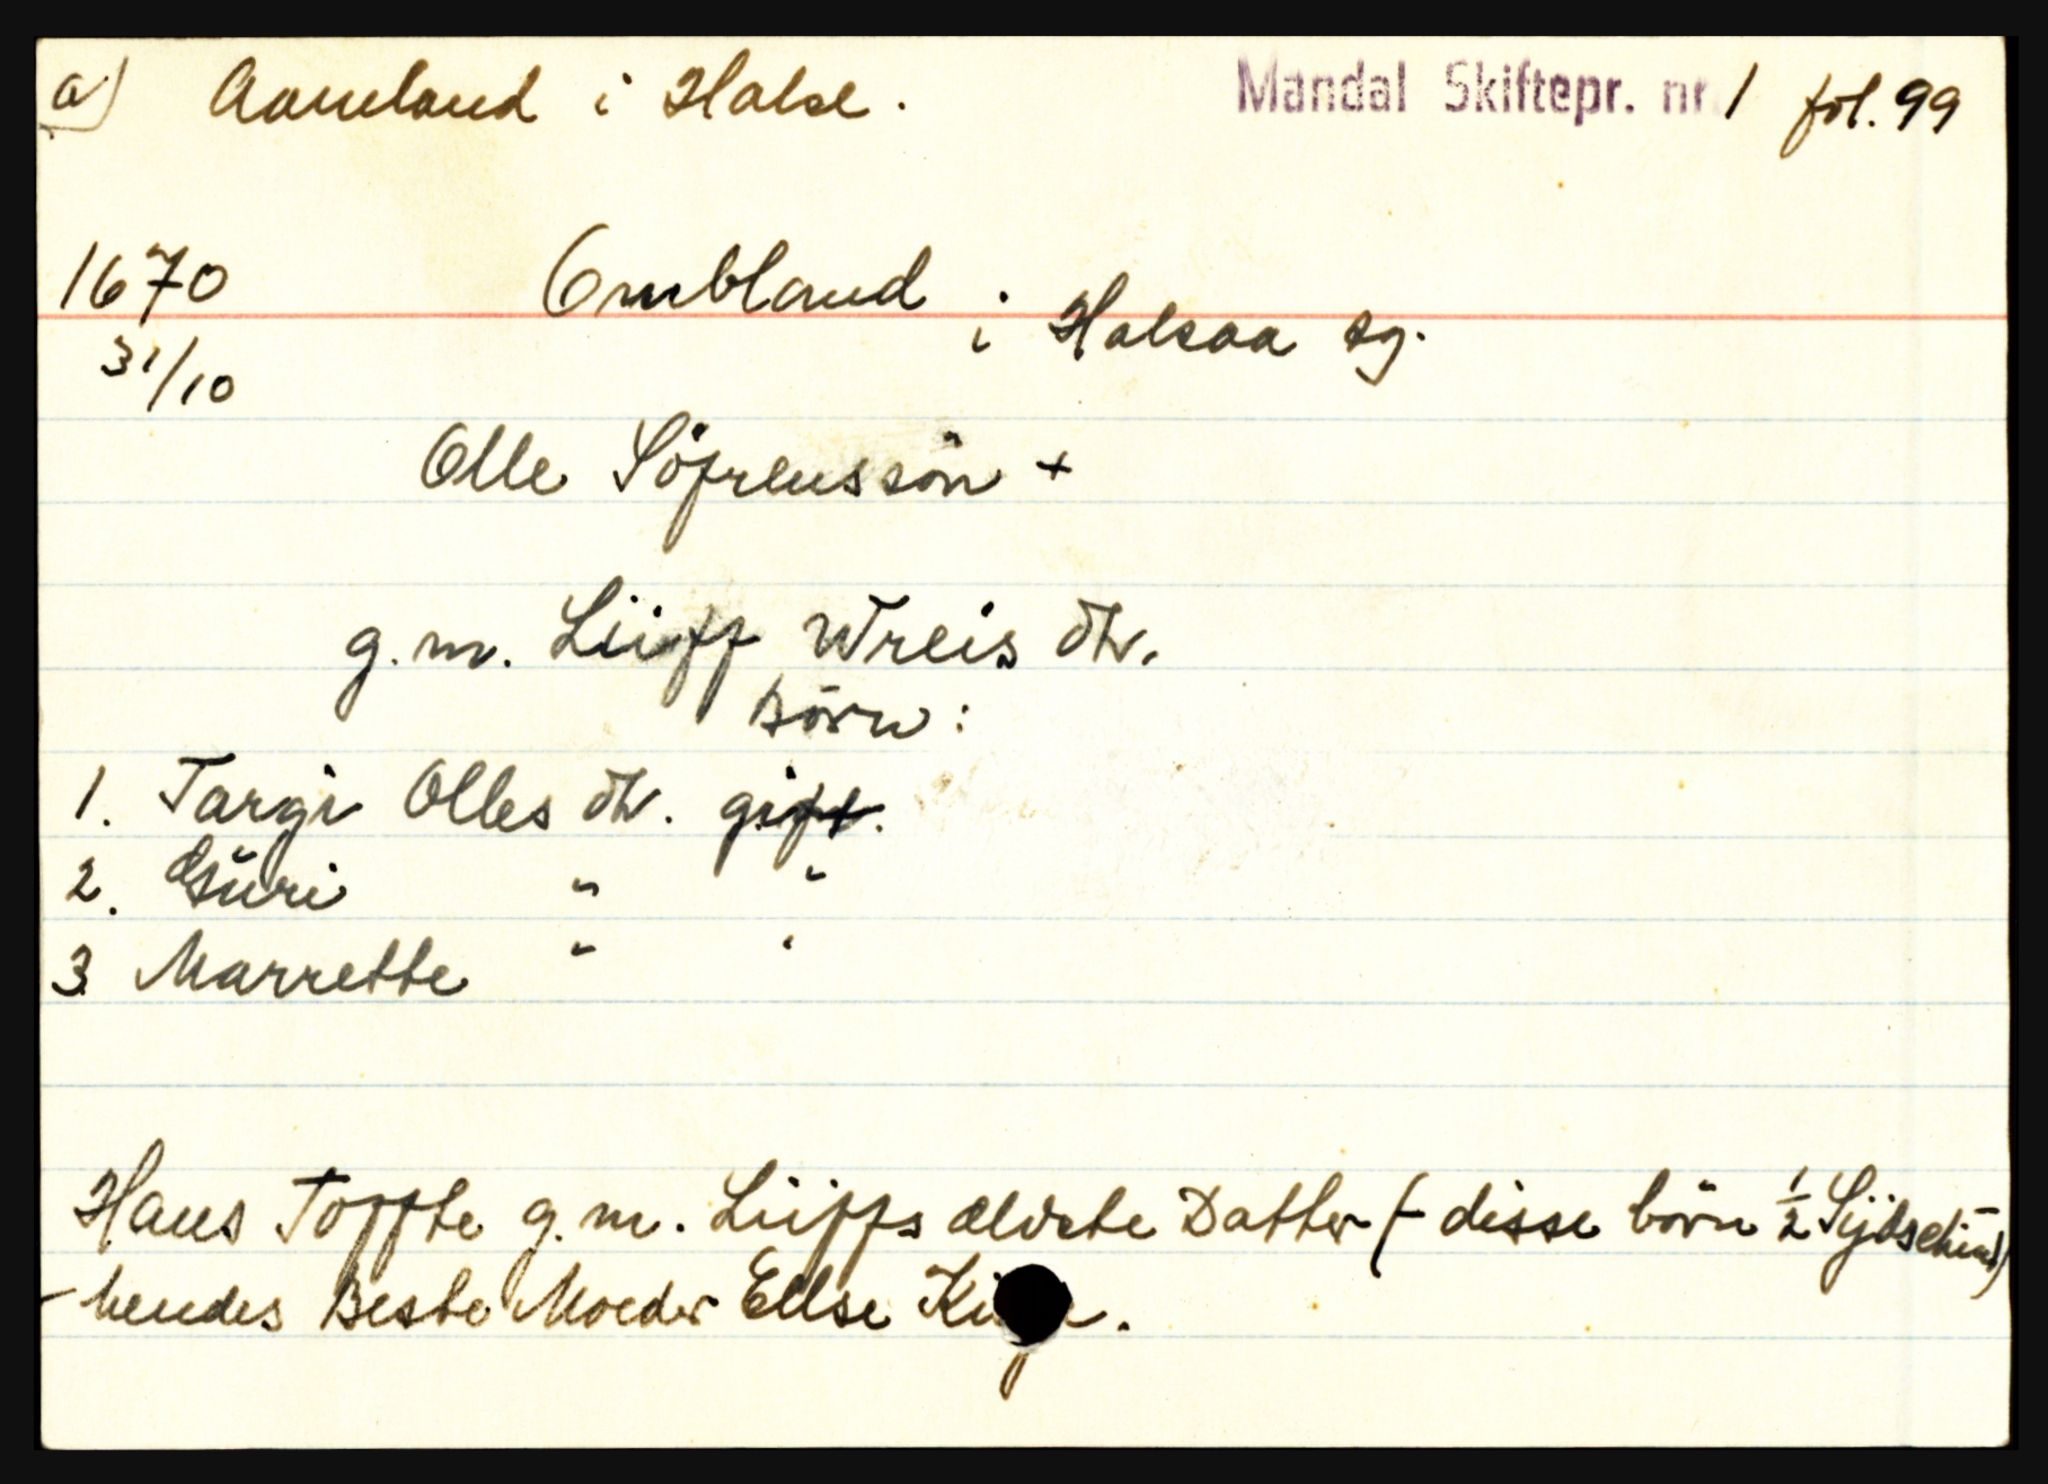 a) Aameland i Halse. Mandal Skiftepr. nr. 1 fol. 99
1670 Ombland i Halsaa sg.
31/10
Olle Söfrenssön +
g.m. Liiff Wreis dtr.
Börn:
1. Targi Olles dtr. gift.
2. Guri " "
3 Marrette " "
Hans Toffte g.m. Liiffs eldste Datter (- disse börn 1/2
- hendes Beste Moeder Ellse